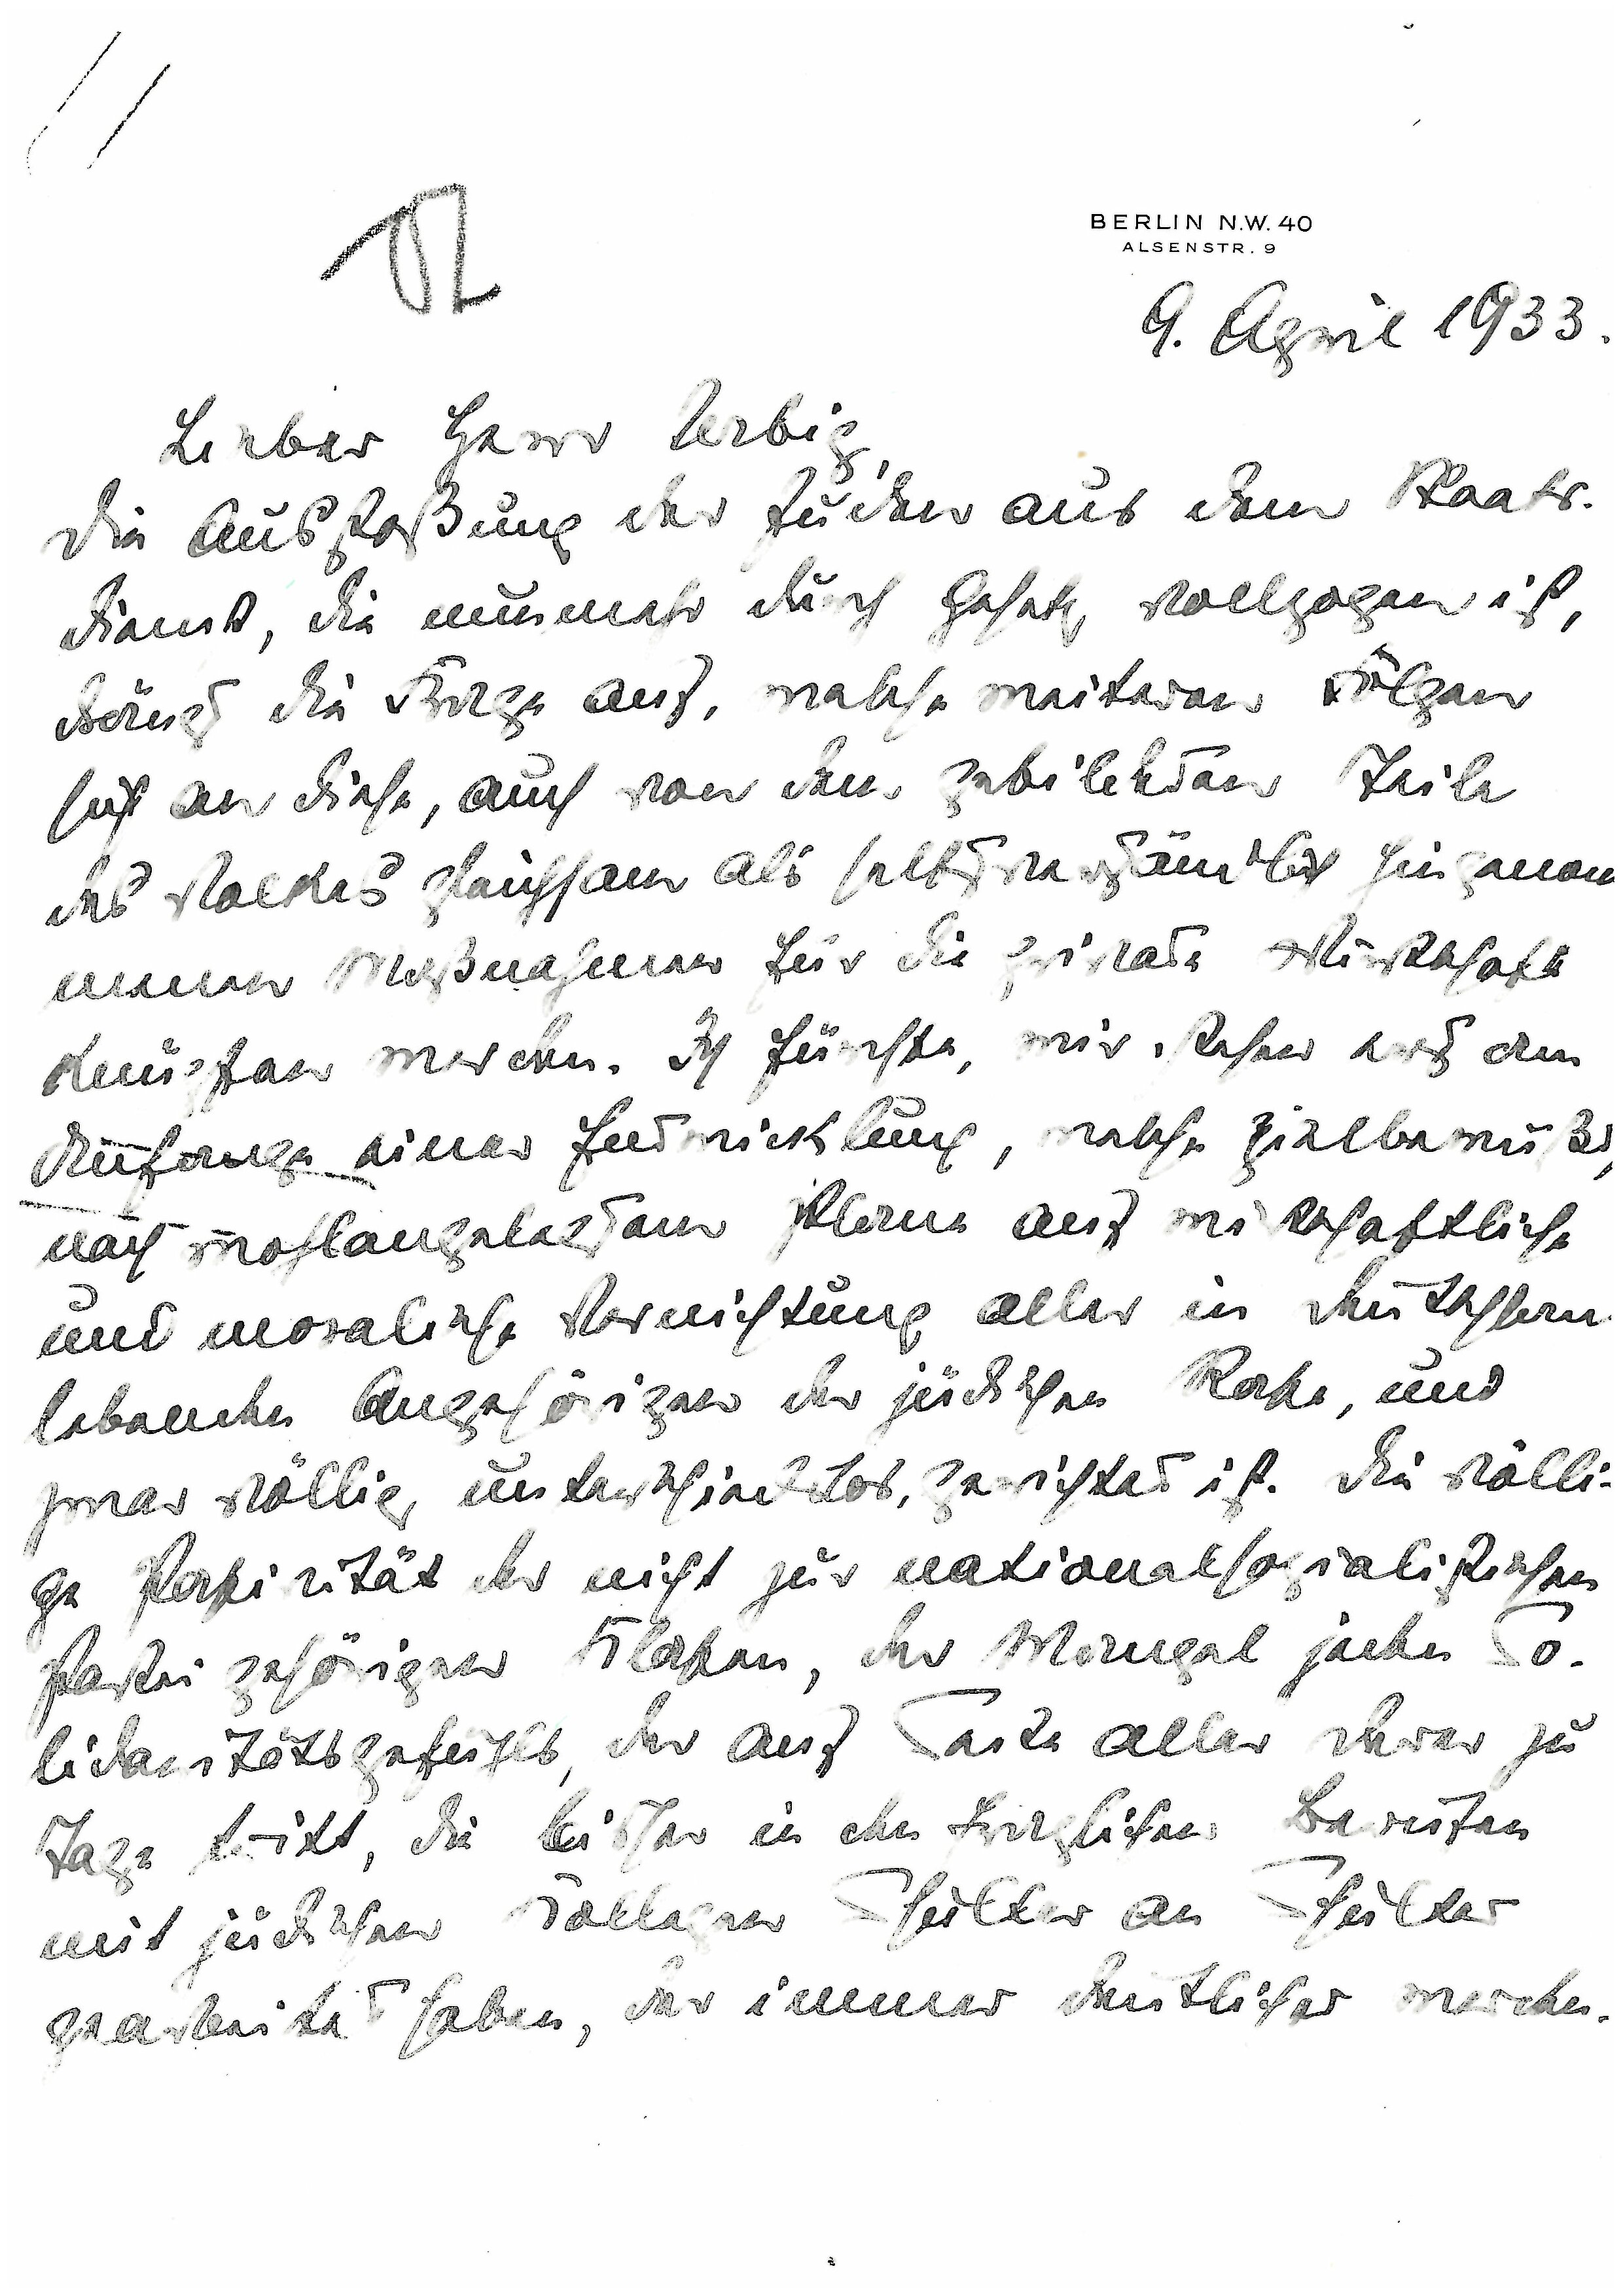 BERLIN N.W. 40
ALSENSTR. 9
9. April 1933.
Lieber Herr Urbig,
die Ausstoßung der Juden aus dem Staats-
dienst, die nunmehr durch Gesetz vollzogen ist,
drängt die Frage auf, welche weiteren Folgen
sich an diese, auch von dem gebildeten Teile
des Volkes gleichsam als selbstverständlich hingenom
menen Maßnahmen für die private Wirtschaft
knüpfen werden. Ich fürchte, wir stehen erst am
Anfange einer Entwicklung, welche zielbewußt,
nach wohlangelegtem Plane auf wirtschaftliche
und moralische Vernichtung aller in Deutschland
lebenden Angehörigen der jüdischen Rasse, und
zwar völlig unterschiedslos, gerichtet ist. Die völli-
ge Passivität der nicht zur nationalsozialistischen
Partei gehörigen Klassen, der Mangel jeden So-
lidaritätsgefühls, der auf Seite aller derer zu
Tage tritt, die bisher in den fraglichen Berufen
mit jüdischen Kollegen Schulter an Schulter
gearbeitet haben, der immer deutlicher werden-